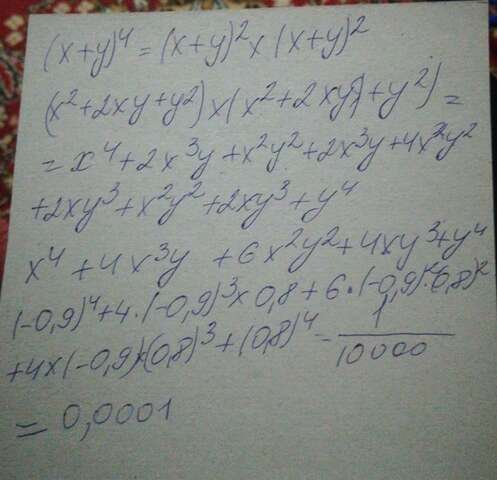 (x+y)⁴ = (x+y)² x (x+y)²
(x²+2xy+y²) x (x²+2xy+y²) =
= x⁴+2x³y+x²y²+2x³y+4x²y²
+2xy³+x²y²+2xy³+y⁴
x⁴+4x³y+6x²y²+4xy³+y⁴
(-0,9)⁴+4·(-0,9)³x0,8+6·(-0,9)²·(0,8)²
+4x(-0,9)x(0,8)³+(0,8)⁴ = 1/10000
= 0,0001